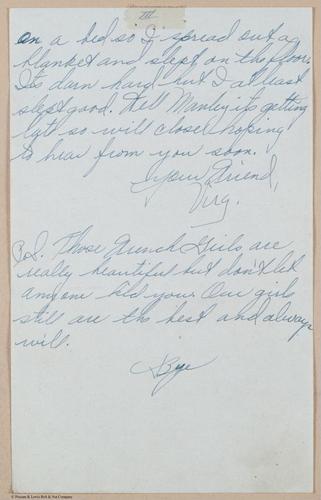 III
on a bed so I spread out a
blanket and slept on the floor.
Its darn hard but I at least
slept good. Well Manley its getting
late so will close hoping
to hear from you soon.
Your Friend,
Virg.
P.S. Those French Girls are
really beautiful but don't let
anyone kid you. Our girls
still are the best and always
will.
Bye
© Prussia & Lewis Bolt & Nut Company